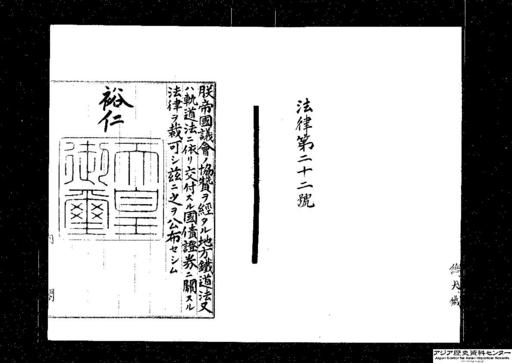 法律第二十二號
朕帝國議會ノ協贊ヲ經タル地方鐵道法又
ハ軌道法ニ依リ交付スル國債證券ニ關スル
法律ヲ裁可シ茲ニ之ヲ公布セシム
裕仁
天皇
御璽
内閣
アジア歴史資料センター
Japan Center for Asian Historical Records